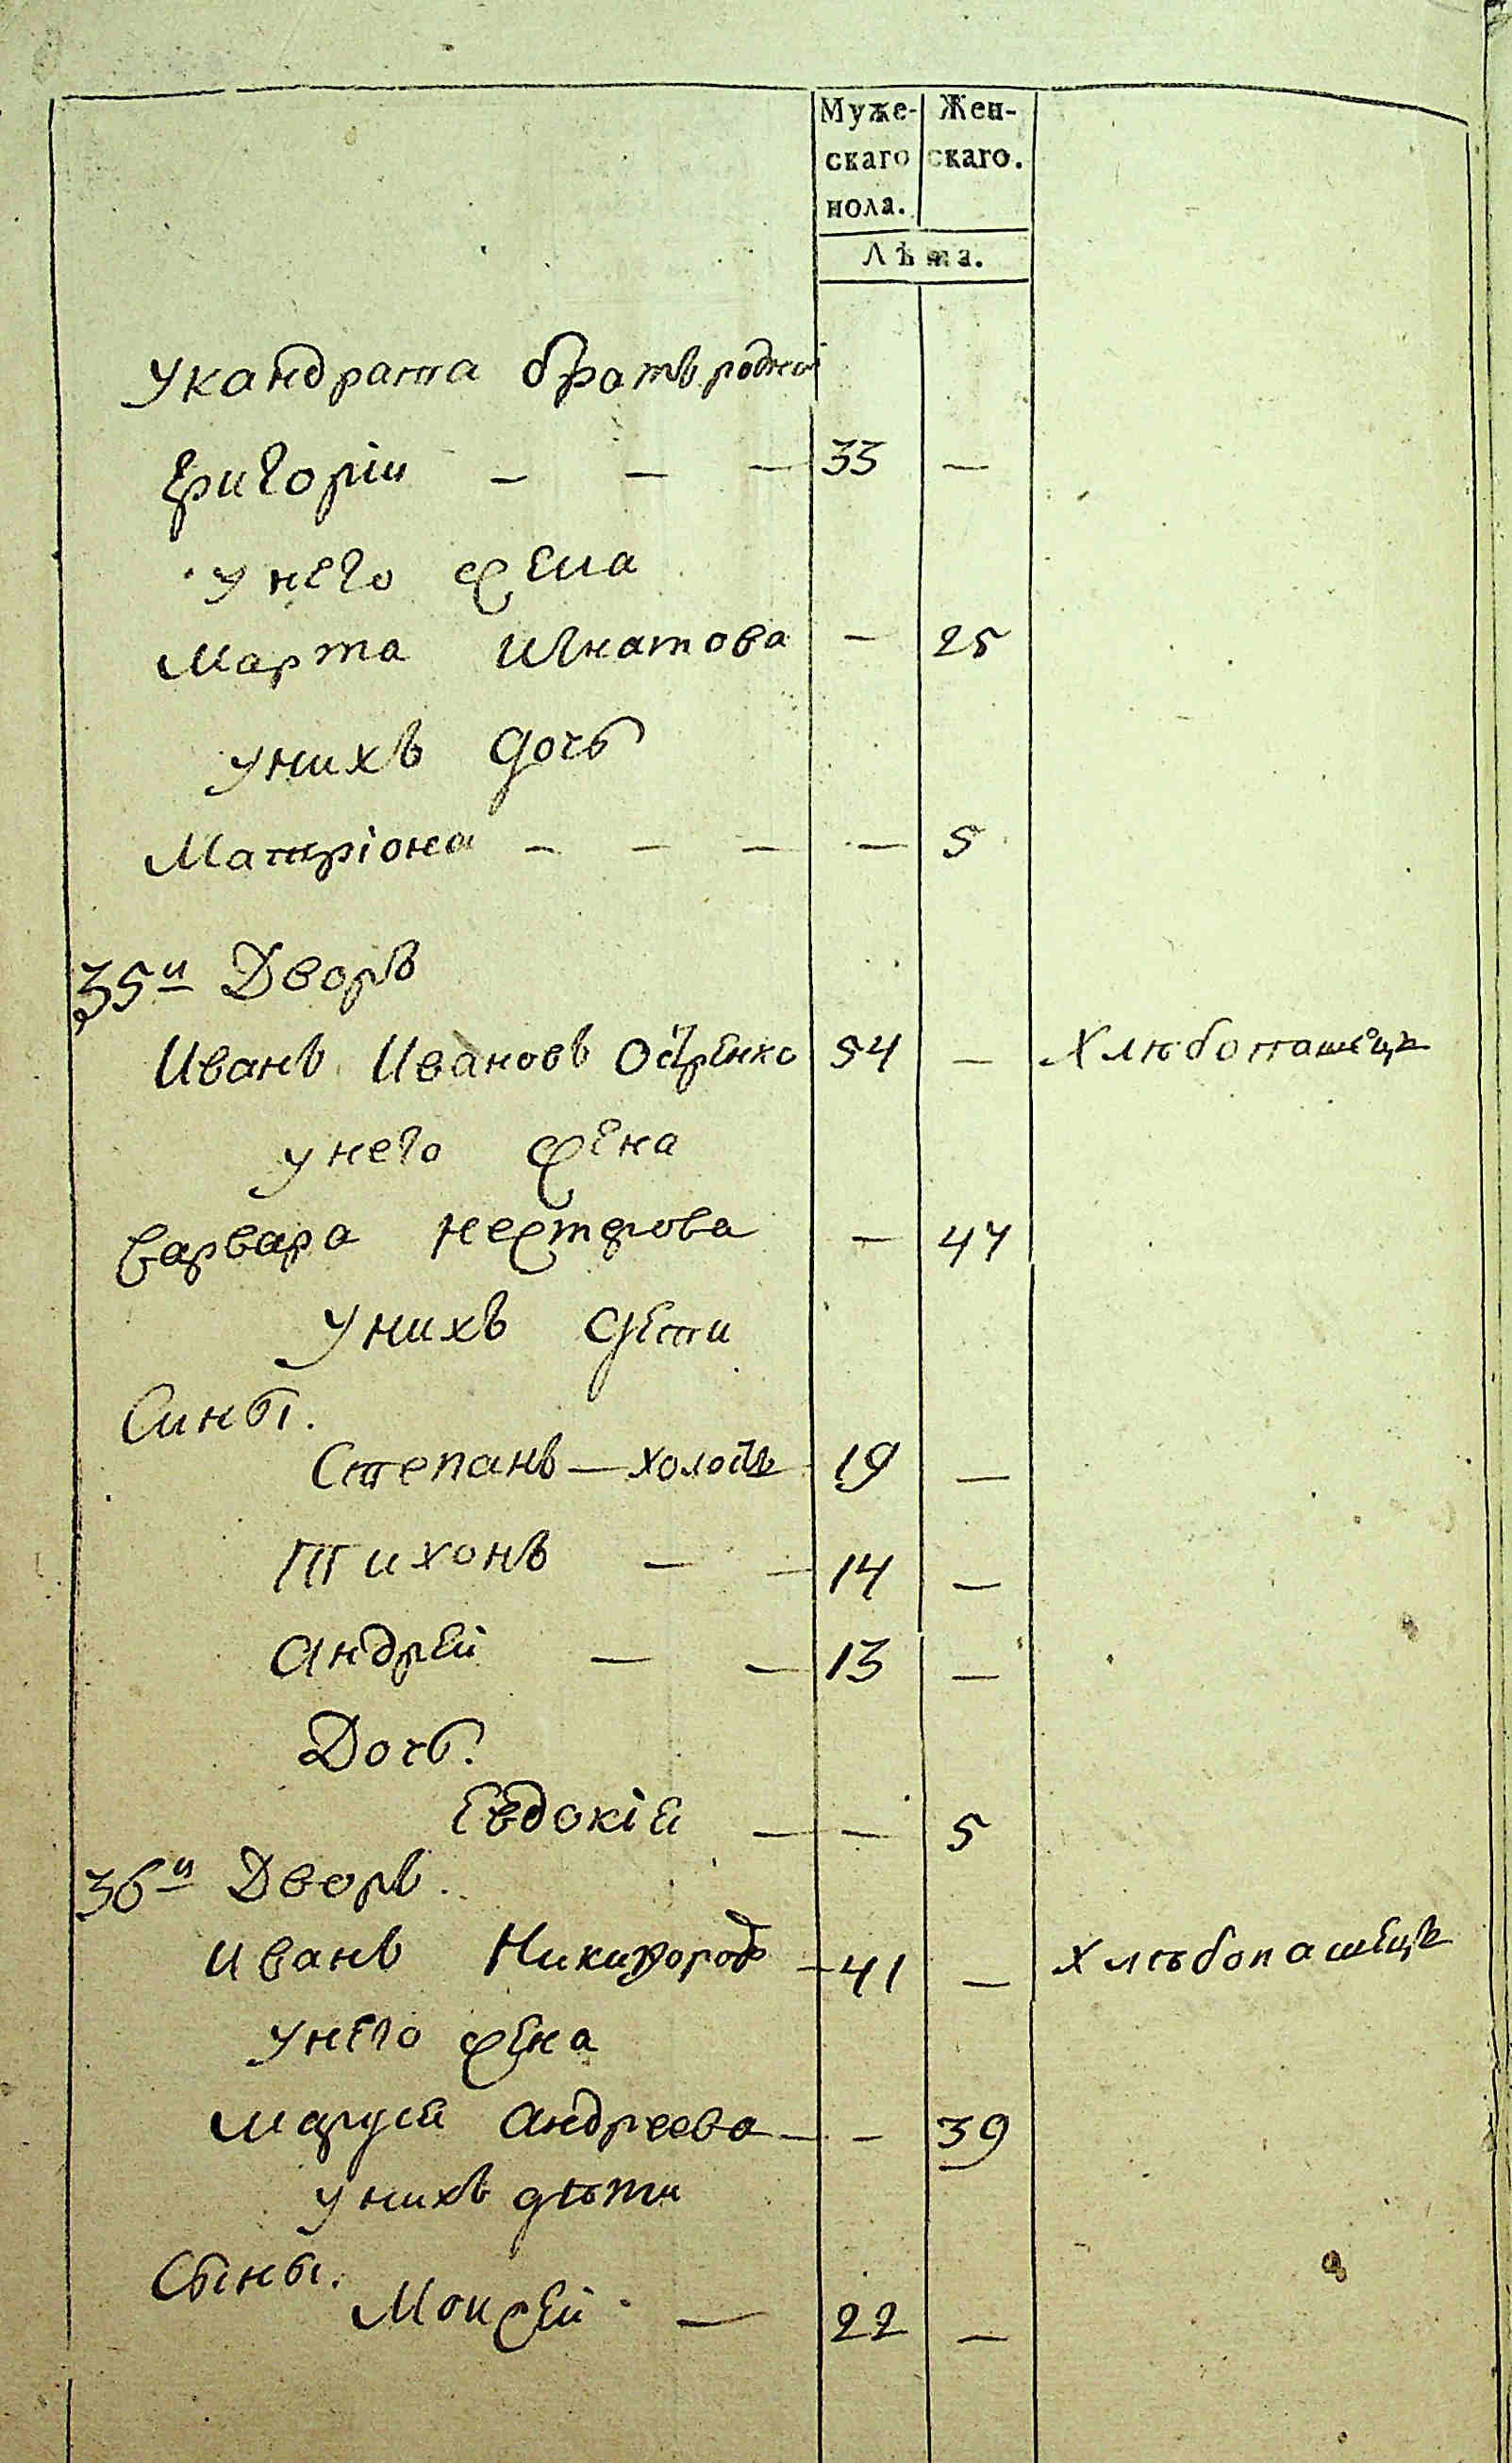 Муже- Жен-
скаго скаго.
пола.
Лѣта.
У кандрата братъ родной
Григории — — — 33 —
у него жена
Марта Игнатова — 25
у нихъ дочь
Матріона — — — — 5
35й Дворъ
Иванъ Ивановъ 54 — Хлѣбопашецъ
у него жена
Варвара Нестерова — 47
у нихъ дети
Сины.
Степанъ — холостъ 19 —
Тихонъ — — 14 —
Андрей — — 13 —
Дочь.
Евдокія — — 5
36й Дворъ.
Иванъ — 41 — Хлѣбопашецъ
у него жена
Марія Андреева — — 39
у нихъ дѣти
Сыны.
Моисей — 22 —